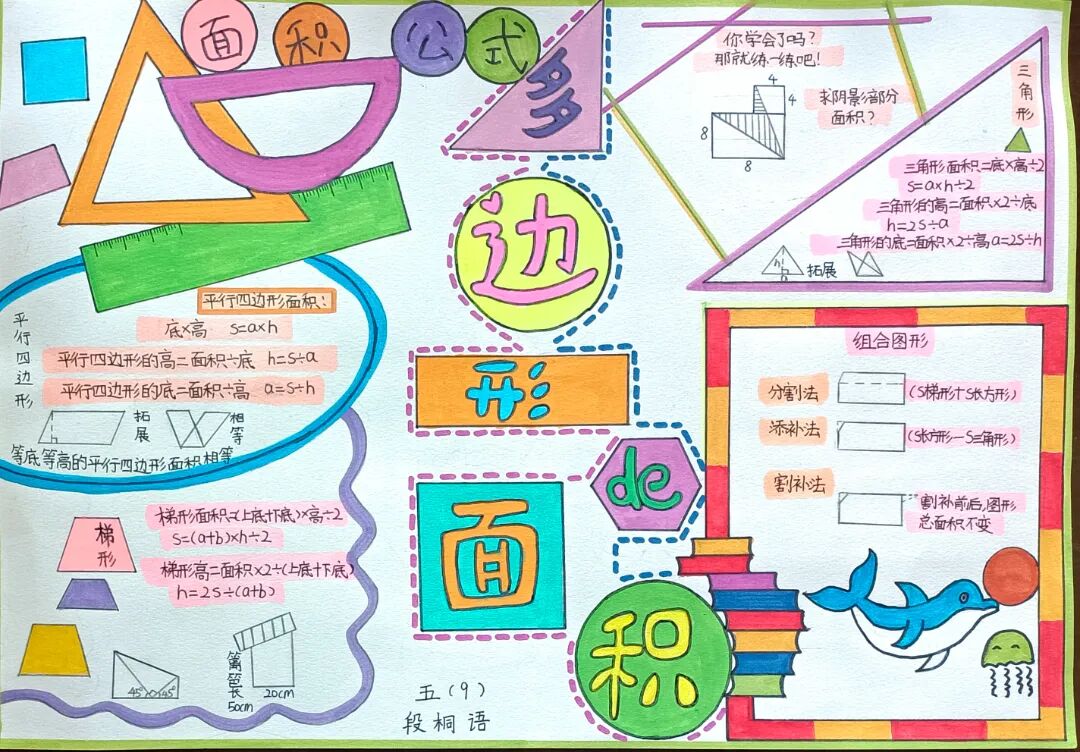 面积公式
多
边
形
de
面
积
五(9)
段桐语
平行四边形
平行四边形面积:
底×高 s=a×h
平行四边形的高=面积÷底 h=s÷a
平行四边形的底=面积÷高 a=s÷h
h
拓展
相等
等底等高的平行四边形面积相等
梯形
梯形面积=(上底+下底)×高÷2
s=(a+b)×h÷2
梯形高=面积×2÷(上底+下底)
h=2s÷(a+b)
45°
45°
篱笆长
50cm
20cm
你学会了吗?
那就练一练吧!
求阴影部分
面积?
4
4
8
8
三角形
三角形面积=底×高÷2
s=a×h÷2
三角形的高=面积×2÷底
h=2s÷a
三角形的底=面积×2÷高 a=2s÷h
h
拓展
组合图形
分割法
(S梯形+S长方形)
添补法
(S长方形-S三角形)
割补法
割补前后,图形
总面积不变